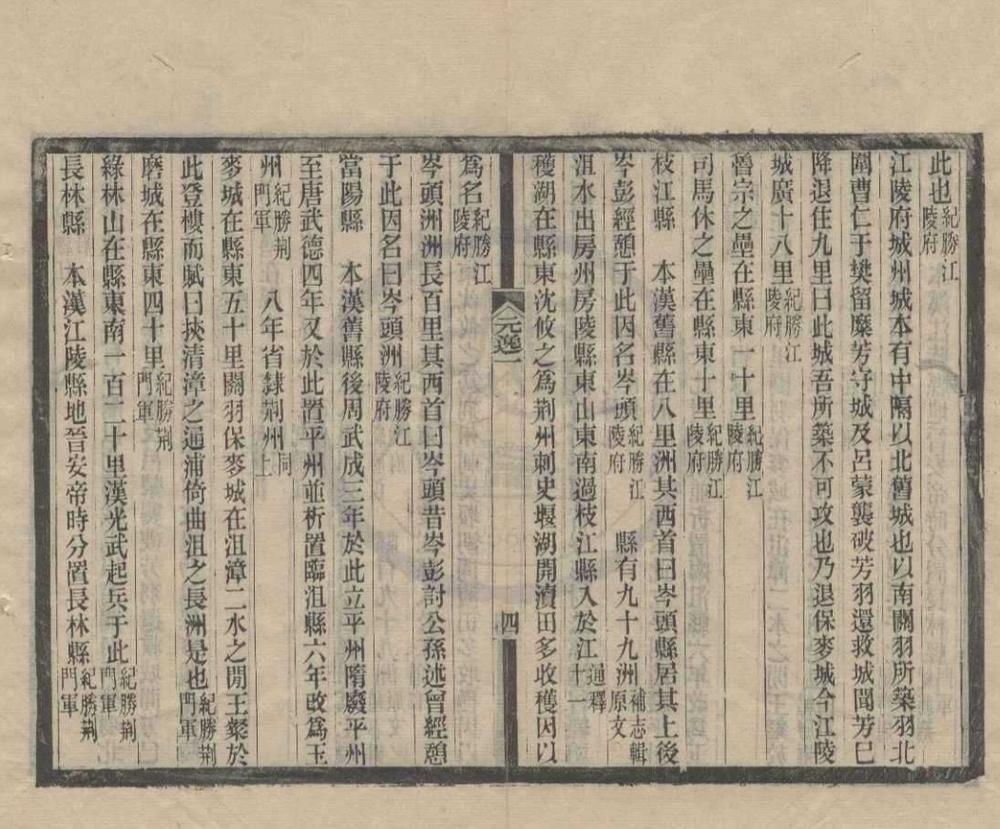 此也紀勝江陵府
江陵府城州城本有中隔以北舊城也以南關羽所築羽北
圍曹仁于樊留糜芳守城及呂蒙襲破芳羽還救城聞芳巳
降退住九里曰此城吾所築不可攻也乃退保麥城今江陵
城廣十八里紀勝江陵府
魯宗之壘在縣東一十里紀勝江陵府
司馬休之壘在縣東十里紀勝江陵府
枝江縣　本漢舊縣在八里洲其西首曰岑頭縣居其上後
岑彭經憩于此因名岑頭紀勝江陵府　縣有九十九洲補志輯原文
沮水出房州房陵縣東山東南過枝江縣入於江通釋十一
穫湖在縣東沈攸之為荆州刺史堰湖開瀆田多收穫因以
元逸一
四
為名紀勝江陵府
岑頭洲洲長百里其西首曰岑頭昔岑彭討公孫述曾經憩
于此因名曰岑頭洲紀勝江陵府
當陽縣　本漢舊縣後周武成三年於此立平州隋廢平州
至唐武德四年又於此置平州並析置臨沮縣六年改為玉
州紀勝荆門軍　八年省隸荆州同上
麥城在縣東五十里關羽保麥城在沮漳二水之閒王粲於
此登樓而賦曰挾清漳之通浦倚曲沮之長洲是也紀勝荆門軍
磨城在縣東四十里紀勝荆門軍
綠林山在縣東南一百二十里漢光武起兵于此紀勝荆門軍
長林縣　本漢江陵縣地晉安帝時分置長林縣紀勝荆門軍